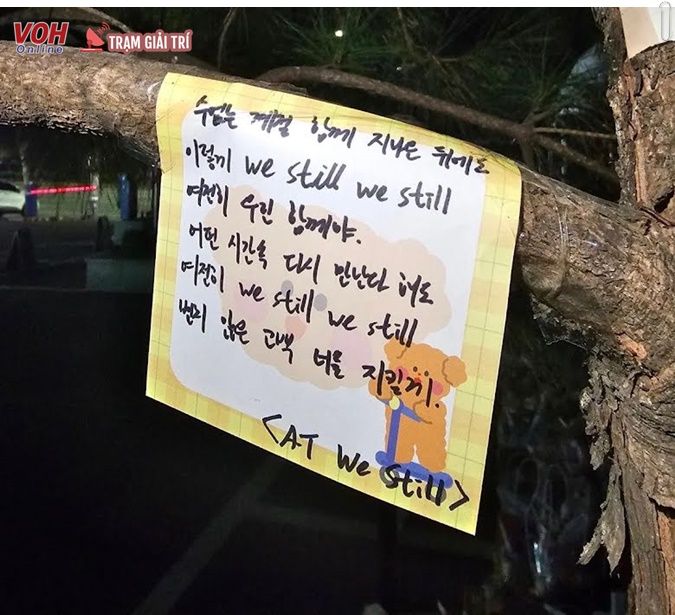 VOH
Online
TRẠM GIẢI TRÍ
수많은 계절 함께 지나온 뒤에도
이렇게 we still we still
여전히 우린 함께야.
어떤 시간속 다시 만난다 해도
여전히 we still we still
변치 않은 고백 너를 지킬게.
<AT We Still>